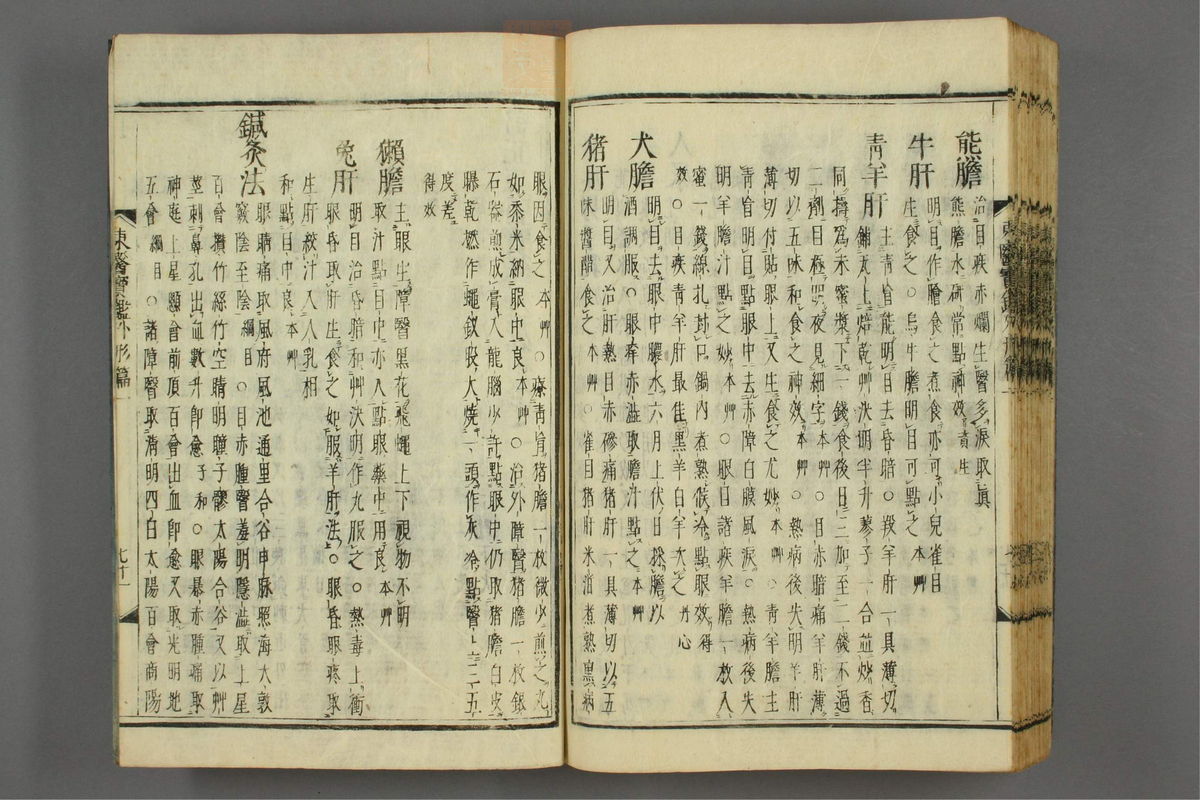 熊膽治目疾赤爛生瞖多淚取真
熊膽水硏常點神效資生
牛肝明目作膾食之煮食亦可小兒雀目
生食之○烏牛膽明目可點之本艸
靑羊肝主靑盲能明目去昏暗○羖羊肝一具薄切
鋪瓦上焙乾艸決明半升蓼子一合並炒香
同擣爲末蜜漿下一錢食後日三加至二錢不過
二劑目極明夜見細字本艸○目赤暗痛羊肝薄
切以五味和食之神效本艸○熱病後失明羊肝
薄切付貼眼上又生食之尤妙本艸○靑羊膽主
靑盲明目點眼中去赤障白膜風淚○熱病後失
明羊膽汁點之妙本艸○眼目諸疾羊膽一枚入
蜜一錢線扎封口鍋內煮熟候冷點眼效得
效○目疾靑羊肝最佳黑羊白羊次之丹心
犬膽明目去眼中膿水六月上伏日採膽以
酒調服○眼痒赤澁取膽汁點之本艸
猪肝明目又治肝熱目赤磣痛猪肝一具薄切以五
味醬醋食之本艸○雀目猪肝米泔煮熟熏病
眼因食之本艸○療靑盲猪膽一枚微火煎之丸
如黍米納眼中良本艸○治外障瞖猪膽一枚銀
石器煎成膏入龍腦少許點眼中仍取猪膽白皮
曝乾燃作蠅釵股大燒一頭作灰冷點瞖上三五
度差得效
獺膽主眼生障瞖黑花飛蠅上下視物不明
取汁點目中亦入點眼藥中用良本艸
兔肝明目治昏暗和艸決明作丸服之○熱毒上衝
眼昏取肝生食之如服羊肝法○眼昏眼疼取
生肝絞汁入人乳相
和點目中良本艸
鍼灸法眼睛痛取風府風池通里合谷申脉照海大敦
竅陰至陰綱目○目赤腫瞖羞明隱澁取上星
百會攢竹絲竹空睛明瞳子髎太陽合谷又以艸
莖刺鼻孔出血數升卽愈子和○眼暴赤腫痛取
神庭上星顖會前頂百會出血卽愈又取光明地
五會綱目○諸障瞖取睛明四白太陽百會商陽
東醫寶鑑外形篇一
七十一